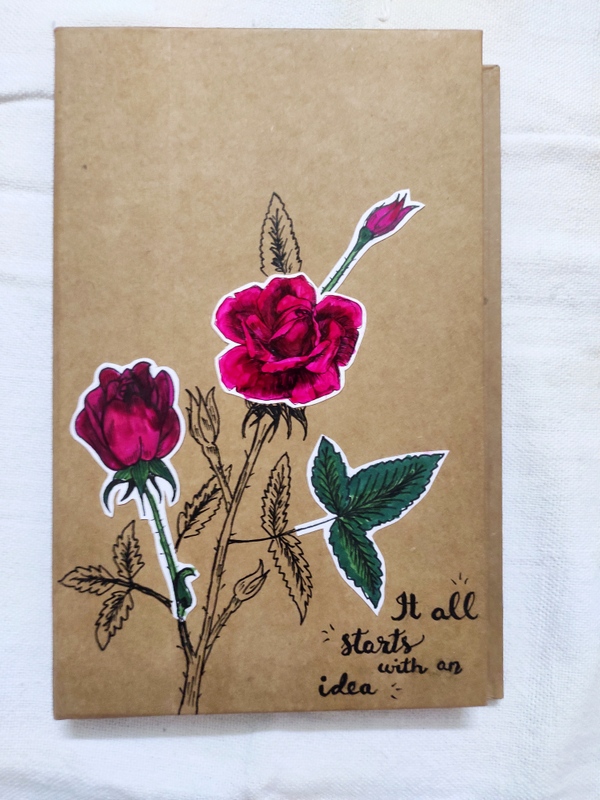 It all
starts
with an
idea